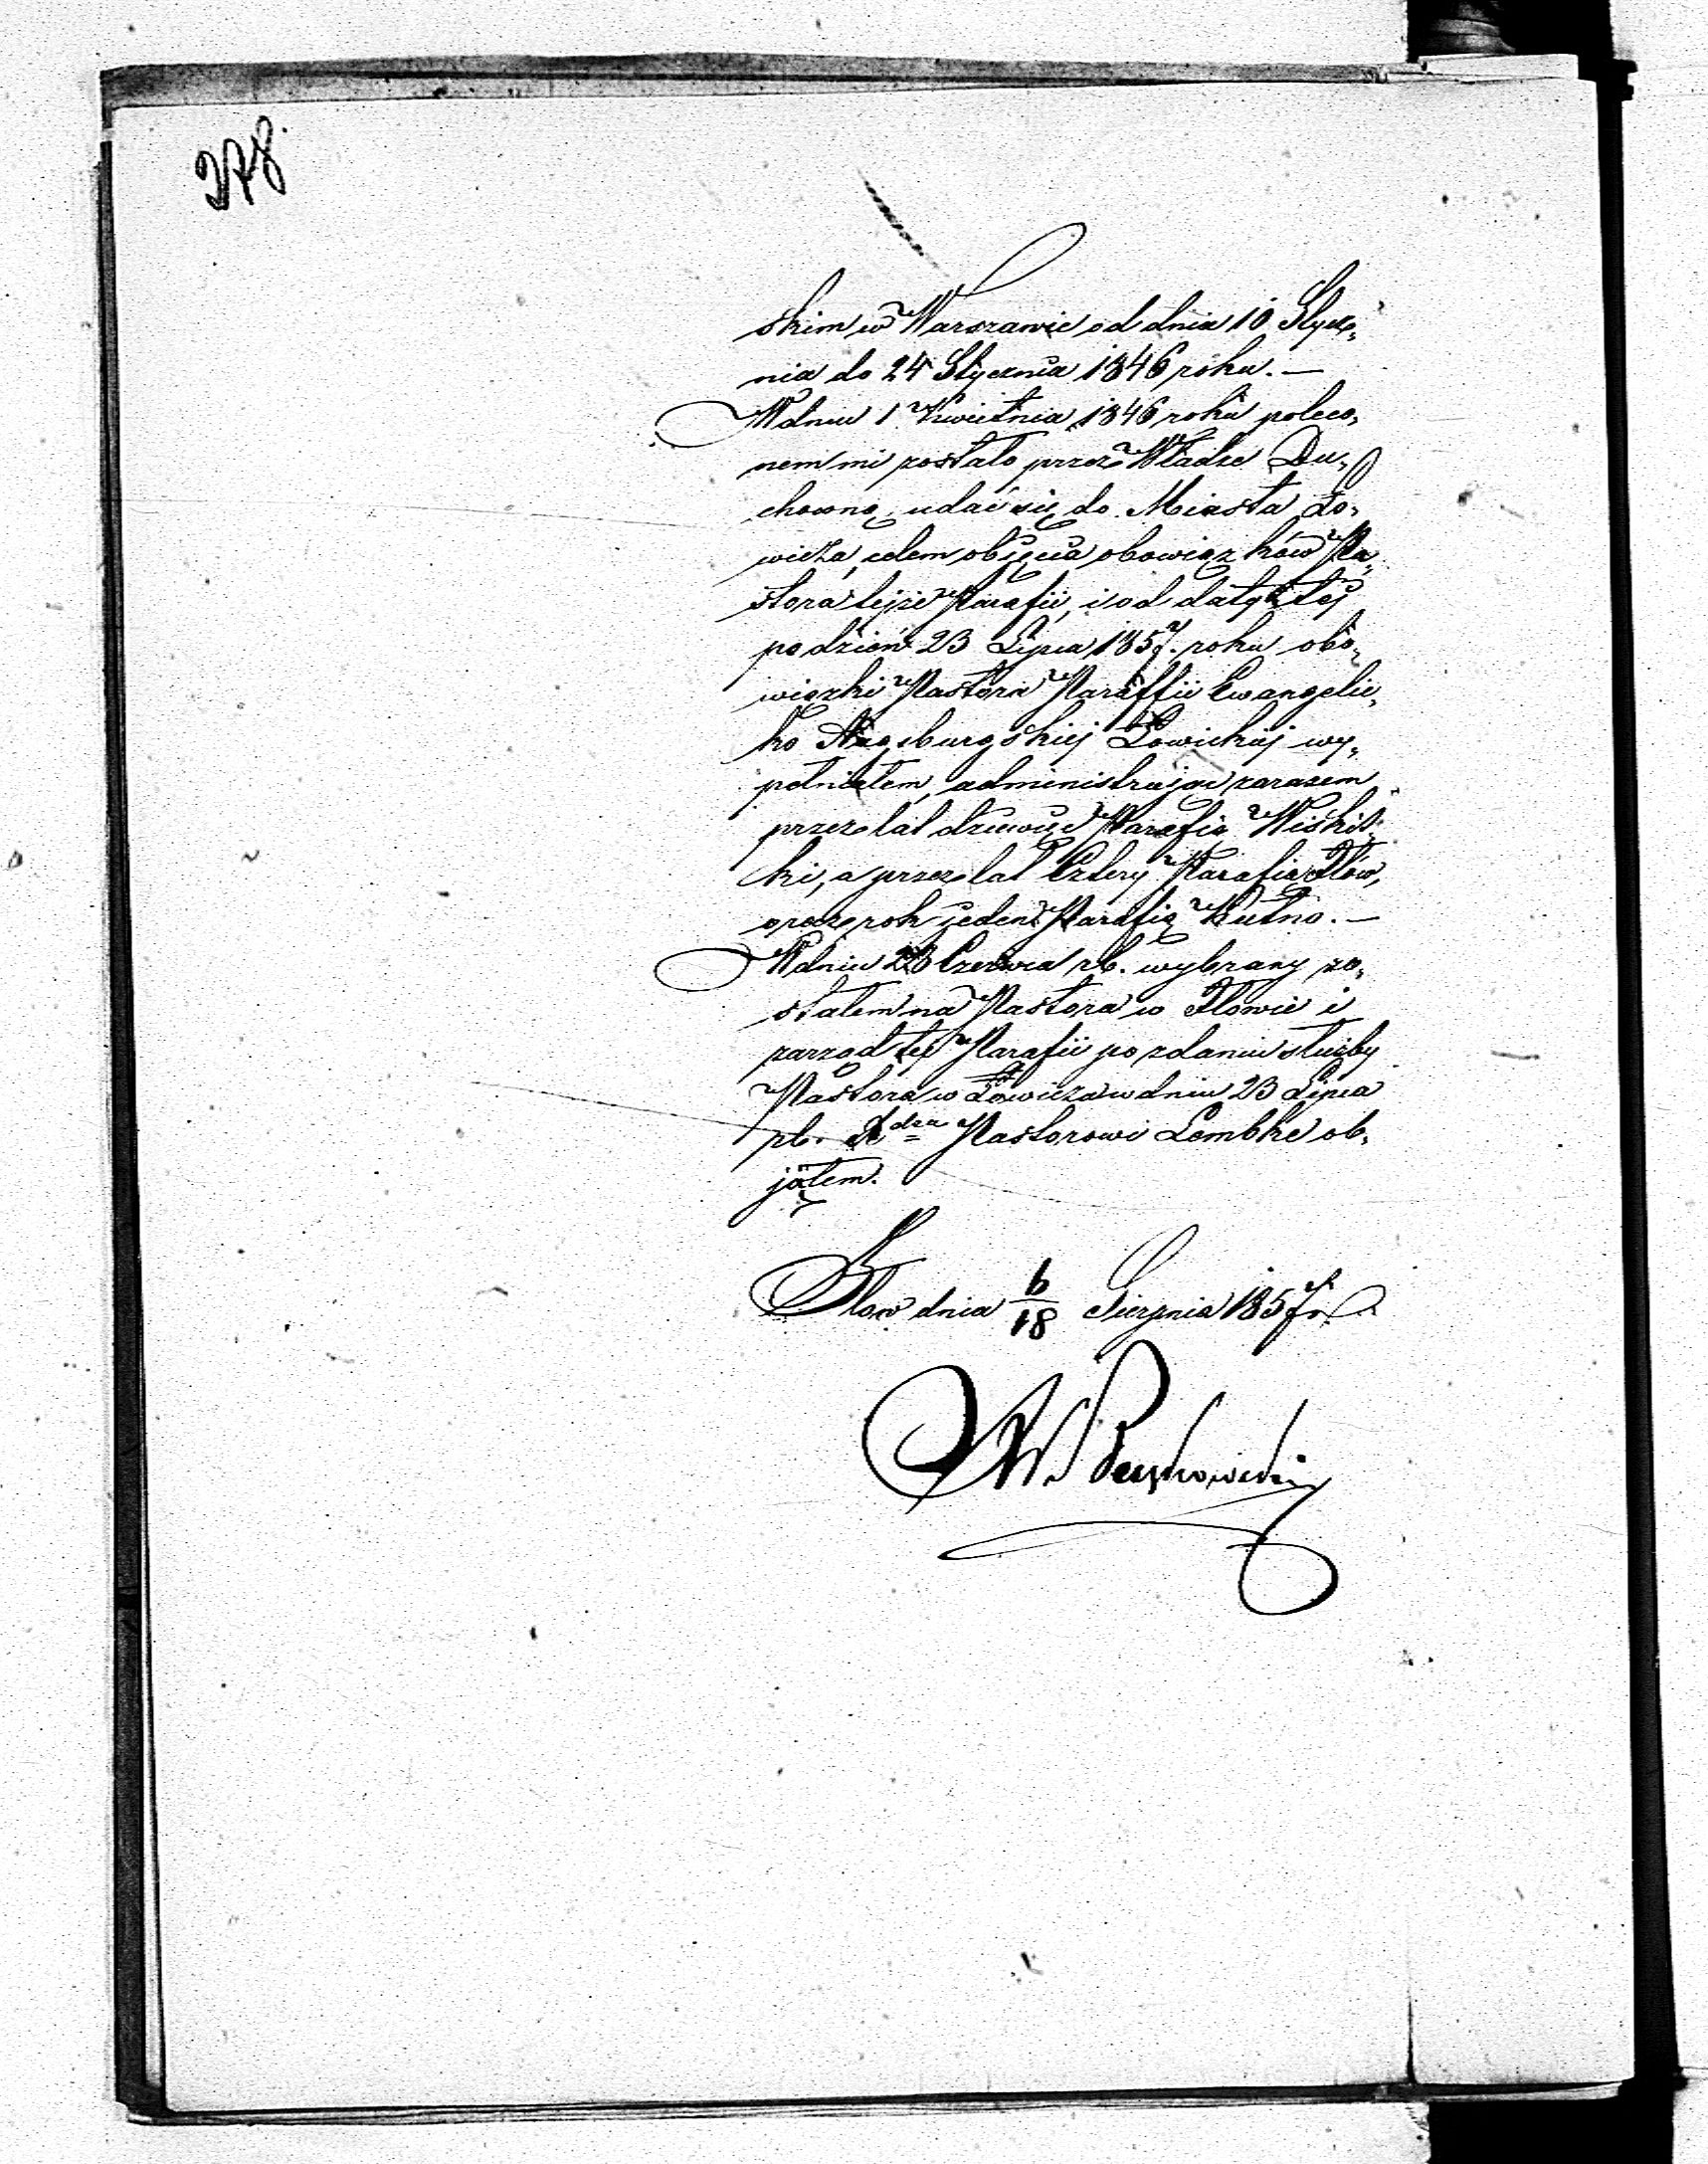 278.
skim w Warszawie od dnia 10 Stycz„
nia do 24 Stycznia 1846 roku. —
W dniu 1 Kwietnia 1846 roku poleco„
nem mi zostało przez Władze Du„
chowną, udać się do Miasta Ło„
wicza, celem objęcia obowiązków Pa„
stora tejże Parafii, i od daty tej
po dzień 23 Lipca 1857. roku obo„
wiązki Pastora Paraffii Ewangelic„
ko Augsburgskiej Łowickiej wy„
pełniałem, administrując zarazem
przez lat dziewięć Parafią Wiskit„
ki, a przez lat Cztery Parafią Iłów,
oraz rok jeden Parafią Kutno. —
W dniu 23 Czerwca rb. wybrany zo„
stałem na Pastora w Iłowie i
zarząd tej Parafii po zdaniu służby
Pastora w Łowiczu w dniu 23 Lipca
rb. Pastorowi Lembke ob„
jąłem.
Iłow dnia 6/18 Sierpnia 1857 r.